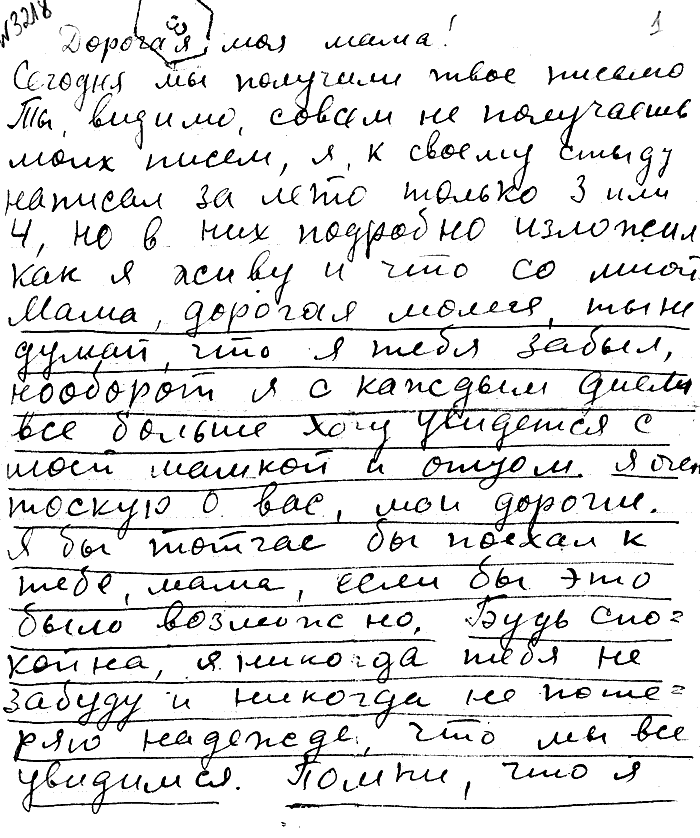 №3218
3
1
Дорогая моя мама!
Сегодня мы получили твое письмо
Ты, видимо, совсем не получаешь
моих писем, я, к своему стыду
написал за лето только 3 или
4, но в них подробно изложил
как я живу и что со мной
Мама, дорогая моя, ты не
думай, что я тебя забыл,
нооборот я с каждым днем
все больше хочу увидется с
моей мамкой и отцом. Я очен
тоскую о вас, мои дорогие.
Я бы тотчас бы поехал к
тебе, мама, если бы это
было возможно. Будь спо=
койна, я никогда тебя не
забуду и никогда не поте=
ряю надежде, что мы все
увидимся. Помни, что я